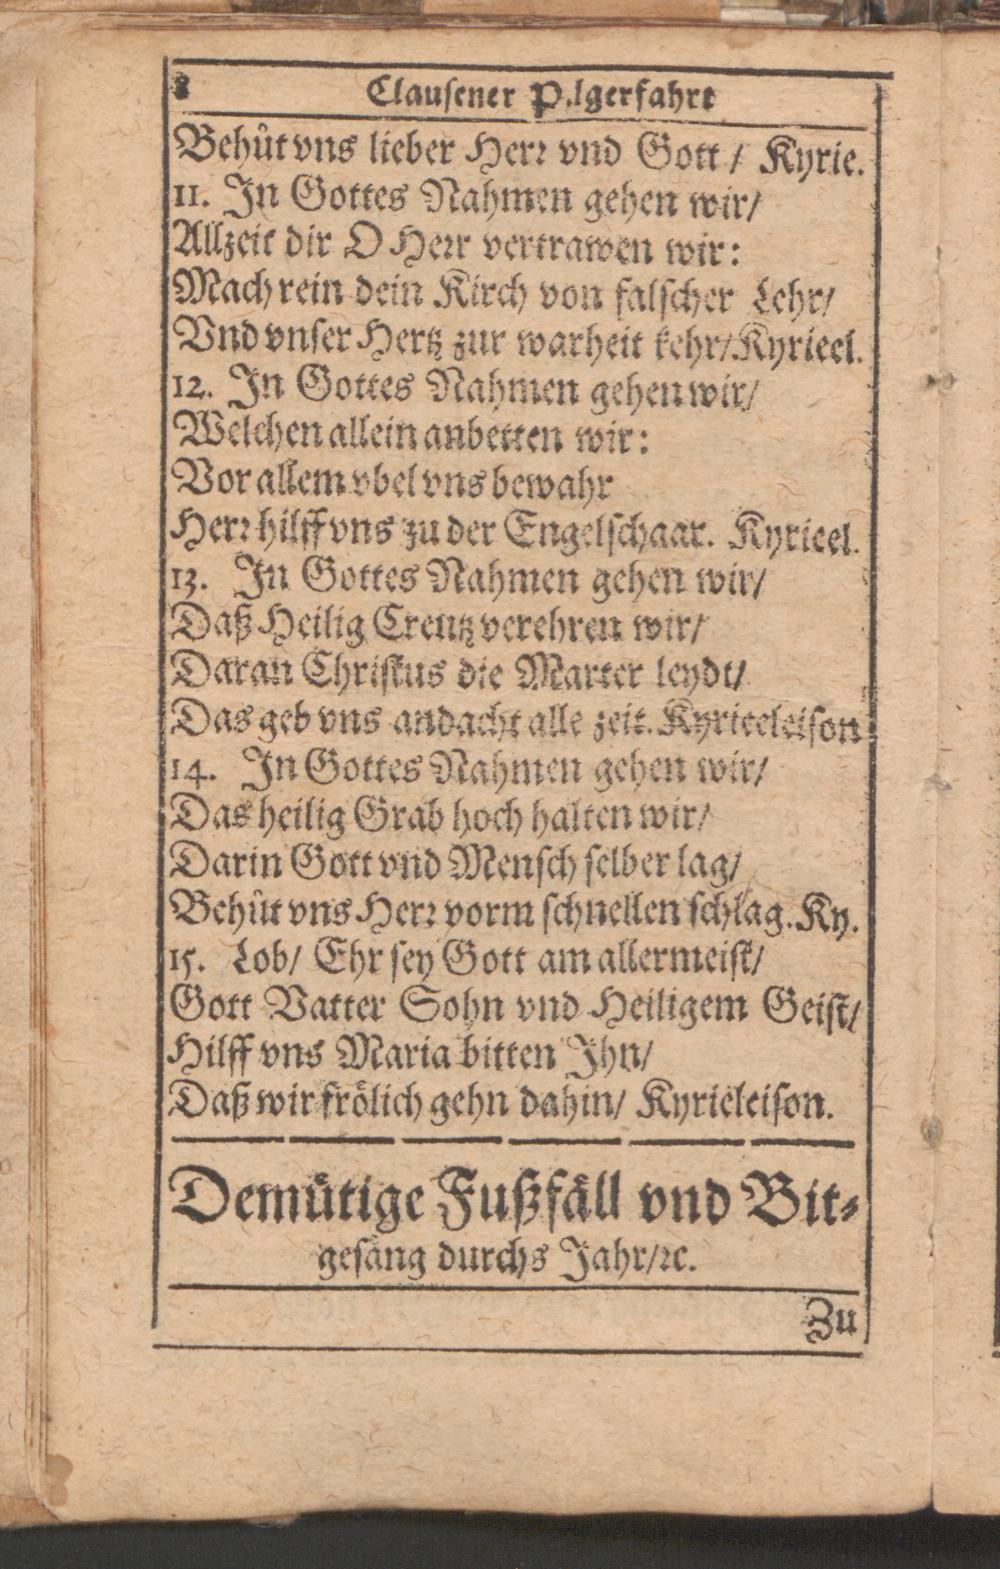 8 Clausener Pilgerfahrt
Behůt vns lieber Herr vnd Gott / Kyrie.
11. In Gottes Nahmen gehen wir/
Allzeit dir O Herr vertrawen wir:
Mach rein dein Kirch von falscher Lehr/
Vnd vnser Hertz zur warheit kehr/ Kyrieel.
12. In Gottes Nahmen gehen wir/
Welchen allein anbetten wir:
Vor allem vbel vns bewahr
Herr hilff vns zu der Engelschaar. Kyrieel.
13. In Gottes Nahmen gehen wir/
Daß Heilig Creutz verehren wir/
Daran Christus die Marter leydt/
Das geb vns andacht alle zeit. Kyrieeleison
14. In Gottes Nahmen gehen wir/
Das heilig Grab hoch halten wir/
Darin Gott vnd Mensch selber lag/
Behůt vns Herr vorm schnellen schlag. Ky.
15. Lob/ Ehr sey Gott am allermeist/
Gott Vatter Sohn vnd Heiligem Geist/
Hilff vns Maria bitten Ihn/
Daß wir frölich gehn dahin/ Kyrieleison.
Demůtige Fußfäll vnd Bit-
gesäng durchs Jahr/ꝛc.
Zu